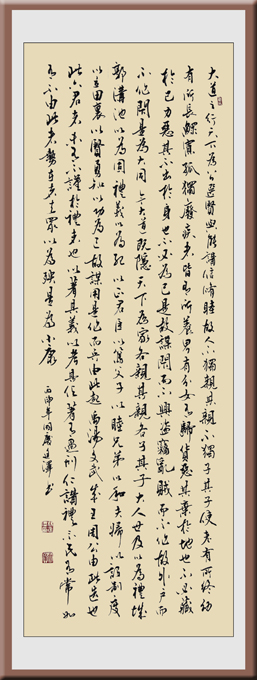 大道之行天下為公選賢與能講信脩睦故人不獨親其親不獨子其子使老有所終幼
有所長鰥寡孤獨廢疾者皆有所養男有分女有歸貨惡其棄於地也不必藏
於己力惡其不出於身也不必為己是故謀閉而不興盜竊亂賊而不作故外戶而
不閉是為大同今大道既隱天下為家各親其親各子其子大人世及以為禮城
郭溝池以為固禮義以為紀以正君臣以篤父子以睦兄弟以和夫婦以設制度
以立田裏以賢勇知以功為己故謀用是作而兵由此起禹湯文武成王周公由此選也
此六君者未有不謹於禮者也以著其義以考其信著有過刑仁講禮示民有常如
有不由此者勢在者去眾以為殃是為小康
丙申年書